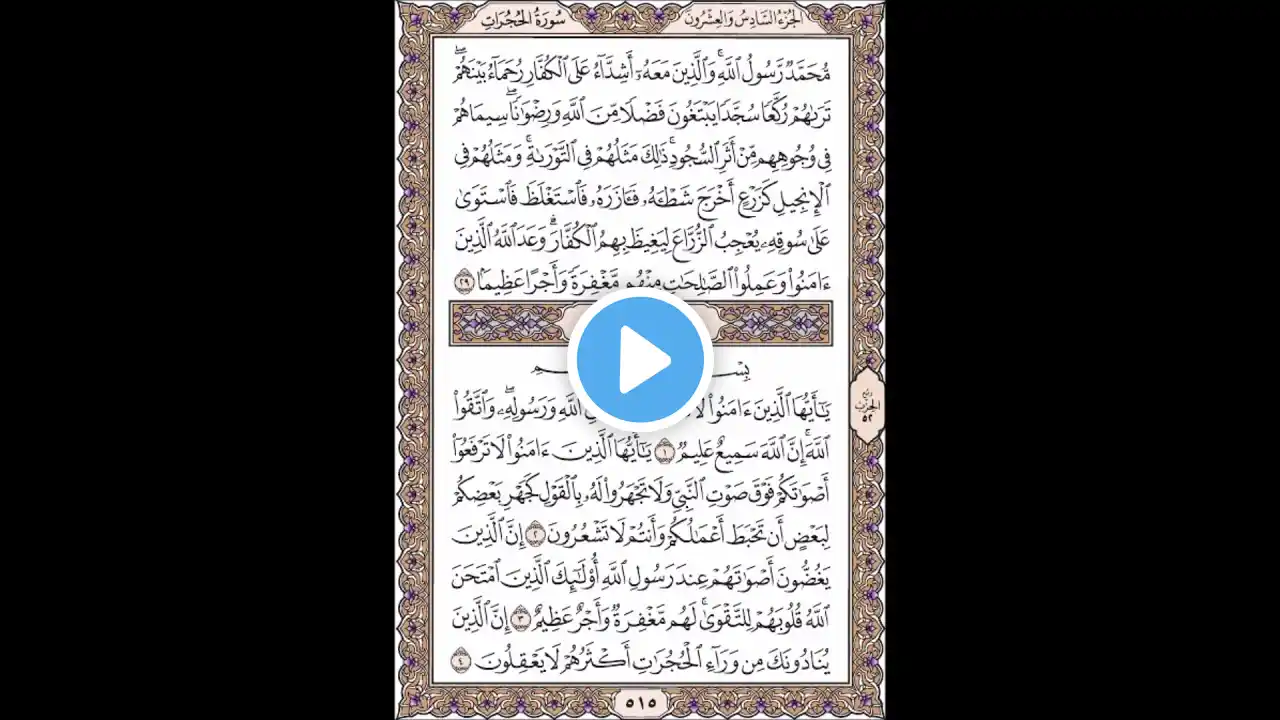 الجزء السادس والعشرون
سورة الحجرات
مُّحَمَّدٌ رَّسُولُ ٱللَّهِ ۚ وَٱلَّذِينَ مَعَهُۥٓ أَشِدَّآءُ عَلَى ٱلْكُفَّارِ رُحَمَآءُ بَيْنَهُمْ ۖ
تَرَىٰهُمْ رُكَّعًا سُجَّدًا يَبْتَغُونَ فَضْلًا مِّنَ ٱللَّهِ وَرِضْوَٰنًا ۖ سِيمَاهُمْ
فِى وُجُوهِهِم مِّنْ أَثَرِ ٱلسُّجُودِ ۚ ذَٰلِكَ مَثَلُهُمْ فِى ٱلتَّوْرَىٰةِ ۚ وَمَثَلُهُمْ فِى
ٱلْإِنجِيلِ كَزَرْعٍ أَخْرَجَ شَطْـَٔهُۥ فَـَٔازَرَهُۥ فَٱسْتَغْلَظَ فَٱسْتَوَىٰ
عَلَىٰ سُوقِهِۦ يُعْجِبُ ٱلزُّرَّاعَ لِيَغِيظَ بِهِمُ ٱلْكُفَّارَ ۗ وَعَدَ ٱللَّهُ ٱلَّذِينَ
ءَامَنُوا۟ وَعَمِلُوا۟ ٱلصَّٰلِحَٰتِ مِنْهُم مَّغْفِرَةً وَأَجْرًا عَظِيمًۢا ٢٩
يَٰٓأَيُّهَا ٱلَّذِينَ ءَامَنُوا۟ ٱللَّهِ وَرَسُولِهِۦ ۖ وَٱتَّقُوا۟
ٱللَّهَ ۚ إِنَّ ٱللَّهَ سَمِيعٌ عَلِيمٌ ١ يَٰٓأَيُّهَا ٱلَّذِينَ ءَامَنُوا۟ لَا تَرْفَعُوٓا۟
أَصْوَٰتَكُمْ فَوْقَ صَوْتِ ٱلنَّبِىِّ وَلَا تَجْهَرُوا۟ لَهُۥ بِٱلْقَوْلِ كَجَهْرِ بَعْضِكُمْ
لِبَعْضٍ أَن تَحْبَطَ أَعْمَٰلُكُمْ وَأَنتُمْ لَا تَشْعُرُونَ ٢ إِنَّ ٱلَّذِينَ
يَغُضُّونَ أَصْوَٰتَهُمْ عِندَ رَسُولِ ٱللَّهِ أُو۟لَٰٓئِكَ ٱلَّذِينَ ٱمْتَحَنَ
ٱللَّهُ قُلُوبَهُمْ لِلتَّقْوَىٰ ۚ لَهُم مَّغْفِرَةٌ وَأَجْرٌ عَظِيمٌ ٣ إِنَّ ٱلَّذِينَ
يُنَادُونَكَ مِن وَرَآءِ ٱلْحُجُرَٰتِ أَكْثَرُهُمْ لَا يَعْقِلُونَ ٤
ربع
الحزب
٥٢
٥١٥